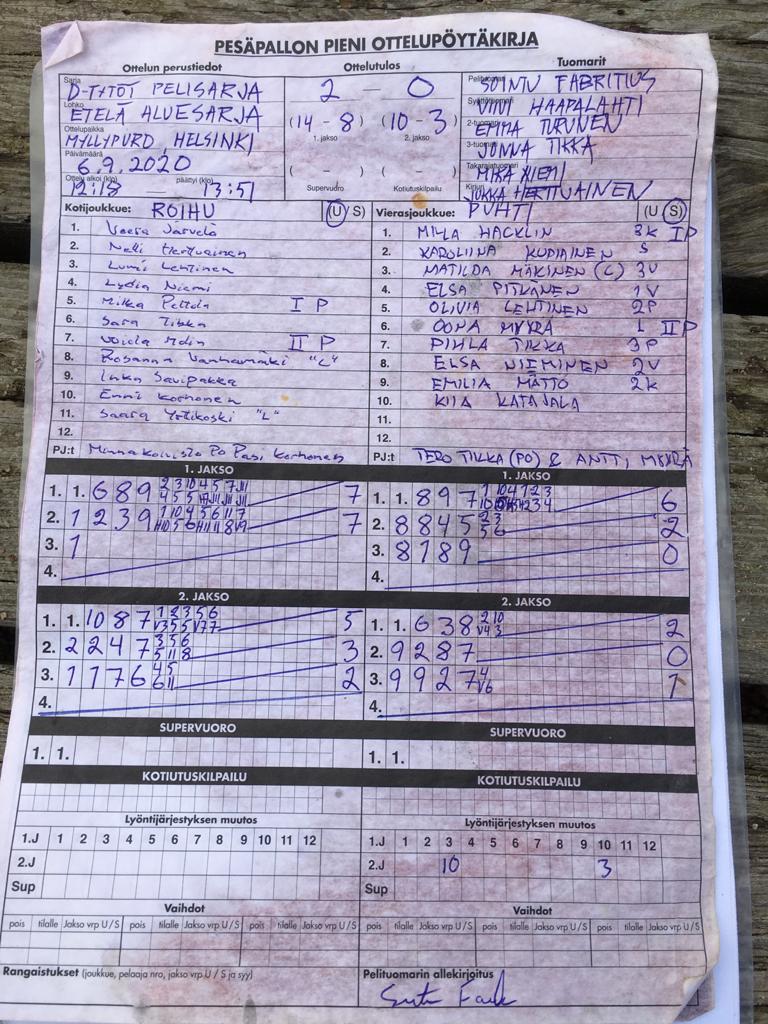 PESÄPALLON PIENI OTTELUPÖYTÄKIRJA
Ottelun perustiedot Ottelutulos Tuomarit
Sarja D-TYTÖT PELISARJA
Lohko ETELÄ ALUESARJA
Ottelupaikka MYLLYPURO, HELSINKI
Päivämäärä 6.7.2020
Ottelu alkoi (klo) 12:18 päättyi (klo) 13:51
2 — 0
(14 - 8) (10 - 3)
1. jakso 2. jakso
( - ) ( - )
Supervuoro Kotiutuskilpailu
Pelituomari SOINTU FABRITIUS
Syöttötuomari VIIVI HAAPALAHTI
2-tuomari EMMA TURUNEN
3-tuomari JONNA TIKKA
Takarajatuomari MIKA NIEMI
Kirjuri JUKKA HERTTUAINEN
Kotijoukkue: ROIHU (U / S)
1. Veera Järvelä
2. Nelli Herttuainen
3. Lumi Lehtinen
4. Lydia Niemi
5. Milka Peltola I P
6. Sara Tikka
7. II P
8. Rosanna Vanhamäki "L"
9. Inka Savipakka
10. Emmi Korhonen
11. Saara Yrtikoski "L"
12.
PJ:t Minna Koivisto PO Pasi Korhonen
Vierasjoukkue: PUHTI (U / S)
1. MILLA HACKLIN 3K I P
2. KAROLIINA S
3. MATILDA MÄKINEN (C) 3V
4. ELSA PITKÄNEN 1V
5. OLIVIA LEHTINEN 2P
6. OONA MYYRÄ L II P
7. PIHLA TIKKA 3P
8. ELSA NIEMINEN 2V
9. EMILIA MÄTTÖ 2K
10. KIIA KATAJALA
11.
12.
PJ:t TERO TIKKA (PO) & ANTTI MYYRÄ
1. JAKSO
1. 1. 6 8 9 7
2. 1 2 3 9 7
3. 1
4.
1. JAKSO
1. 1. 8 9 7 6
2. 8 8 4 5 2 3 5 6 2
3. 8 7 8 9 0
4.
2. JAKSO
1. 1. 10 8 7 1 2 3 5 6 5
2. 2 2 4 7 3 5 6 5 11 8 3
3. 1 1 7 6 4 5 6 11 2
4.
2. JAKSO
1. 1. 6 3 8 2 10 V4 3 2
2. 9 2 8 7 0
3. 9 9 2 7 4 V6 1
4.
SUPERVUORO
1. 1.
SUPERVUORO
1. 1.
KOTIUTUSKILPAILU
KOTIUTUSKILPAILU
Lyöntijärjestyksen muutos
1.J 1 2 3 4 5 6 7 8 9 10 11 12
2.J
Sup
Lyöntijärjestyksen muutos
1.J 1 2 3 4 5 6 7 8 9 10 11 12
2.J 10 3
Sup
Vaihdot
pois tilalle Jakso vrp U / S pois tilalle Jakso vrp U / S pois tilalle Jakso vrp U / S
Vaihdot
pois tilalle Jakso vrp U / S pois tilalle Jakso vrp U / S pois tilalle Jakso vrp U / S
Rangaistukset (joukkue, pelaaja nro, jakso vrp U / S ja syy)
Pelituomarin allekirjoitus